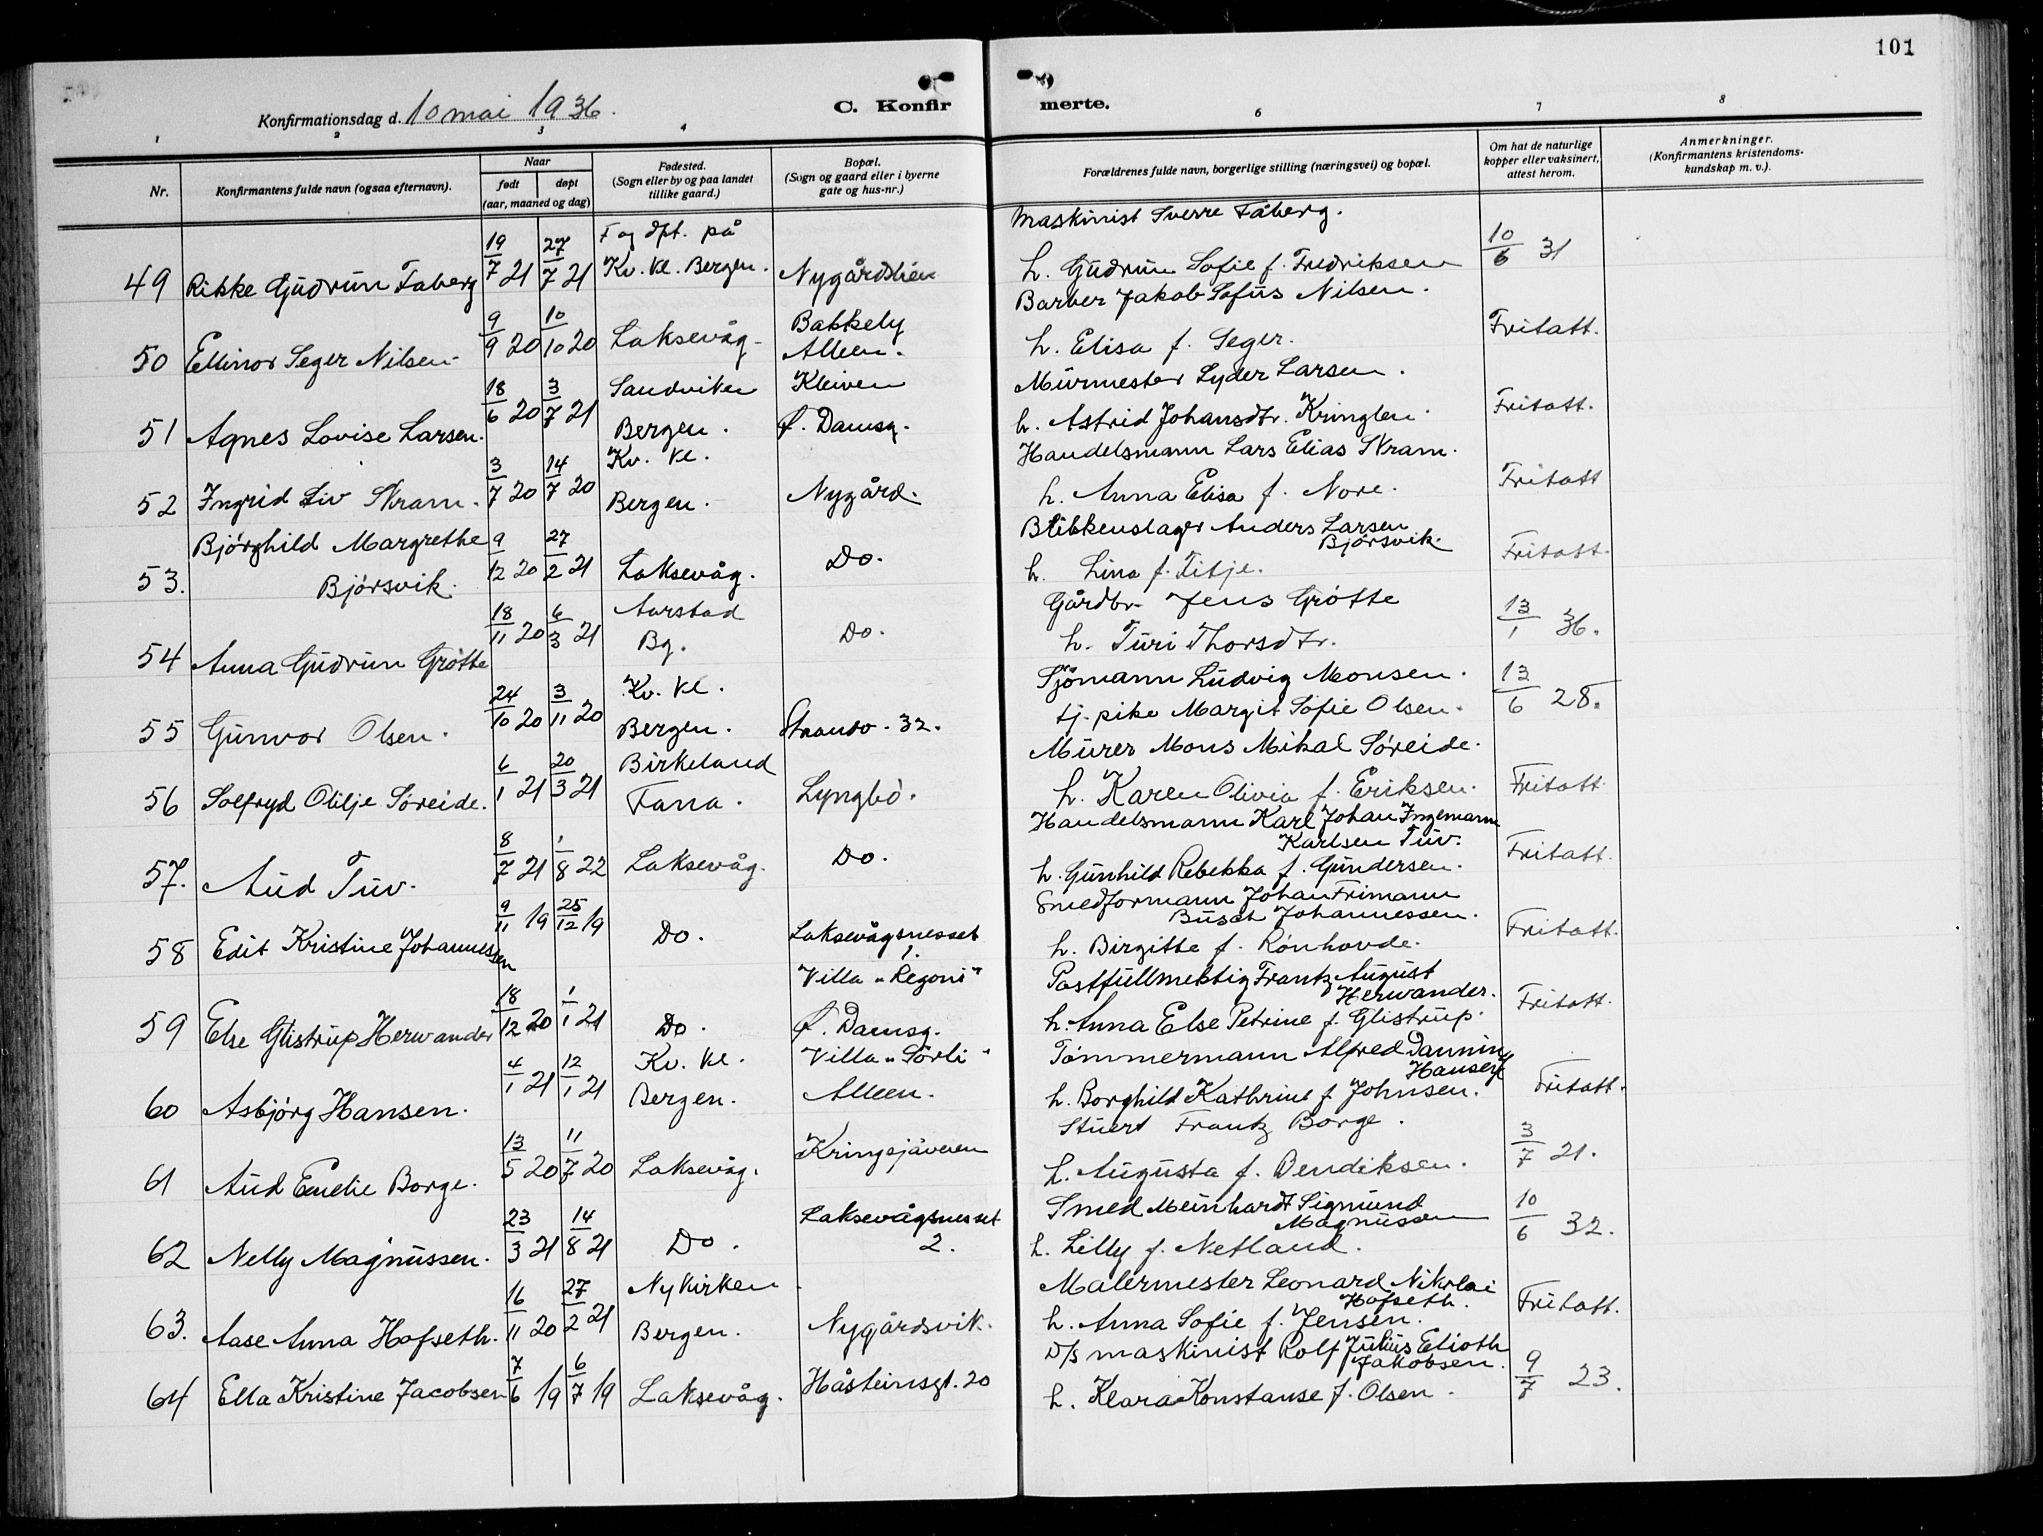 101
Konfirmationsdag d. 10 mai 1936.
C. Konfirmerte.
1 2 3 4 6 7 8
Nr.
Konfirmantens fulde navn (ogsaa efternavn).
Naar
født døpt
(aar, maaned og dag)
Fødested.
(Sogn eller by og paa landet
tillike gaard.)
Bopæl.
(Sogn og gaard eller i byerne
gate og hus-nr.)
Forældrenes fulde navn, borgerlige stilling (næringsvei) og bopæl.
Om hat de naturlige
kopper eller vaksinert,
attest herom.
Anmerkninger.
(Konfirmantens kristendoms-
kundskap m. v.).
F og dpt. på Maskinist Sverre Fåberg.
49 Rikke Gudrun Faberg 19/7 21 27/7 21 Kv. kl. Bergen. Nygårdslien h. Gudrun Sofie f. Fredriksen 10/6 31
Bakkely Barber Jakob Sofus Nilsen.
50 Ellinor Seger Nilsen. 9/9 20 10/10 20 Laksevåg. Alleen. h. Elisa f. Seger. Fritatt.
Sandviken Kleiven Murmester Lyder Larsen.
51 Agnes Lovise Larsen. 18/6 20 3/7 21 Bergen. f. Damsg. h. Astrid Johansdtr. Kringlen. Fritatt.
Kv. kl. Handelsmann Lars Elias Skram.
52 Ingrid Liv Skram. 3/7 20 14/7 20 Bergen. Nygård. h. Anna Elisa f. Nore. Fritatt
Bjørghild Margrethe Blikkenslager Anders Larsen
Bjørsvik.
53. Bjørsvik. 9/12 20 27/2 21 Laksevåg. Do. h. Lina f. Titje. Fritatt.
Aarstad Gårdbr. Jens Grøtte
54 Anna Gudrun Grøtte 18/11 20 6/3 21 Bg. Do. h. Turi Thorsdtr. 13/1 36.
Kv. kl. Sjømann Ludvig Monsen.
55 Gunvor Olsen. 24/10 20 3/11 20 Bergen. Strandv. 32. tj. pike Margit Sofie Olsen. 13/6 28.
Birkeland Murer Mons Mikal Søreide.
56 Solfryd Otilje Søreide. 6/1 21 20/3 21 Fana. Lyngbø. h. Karen Olivia f. Eriksen. Fritatt.
Handelsmann Karl Johan Ingemann
Karlsen Tuv.
57. Aud Tuv. 8/7 21 1/8 22 Laksevåg. Do. h. Gunhild Rebekka f. Gundersen. Fritatt.
Smedformann Johan Frimann
Busch Johannessen.
58 Edit Kristine Johannessen 9/11 19 25/12 19 Do. Laksevågsnesset 1. h. Birgitte f. Rønhovde. Fritatt.
Villa "Regoni" Postfullmektig Frantz August
Herwander.
59 Else Glistrup Herwander 18/12 20 1/1 21 Do. f. Damsg. h. Anna Else Petrine f. Glistrup. Fritatt.
Kv. kl. Villa "Sørli" Tømmermann Alfred Danning
Hansen
60 Asbjørg Hansen. 4/1 21 12/1 21 Bergen. Alleen. h. Borghild Kathrine f. Johnsen. Fritatt.
Stuert Frantz Borge.
61 Aud Emelie Borge. 13/5 20 11/7 20 Laksevåg. Kringsjåveien h. Augusta f. Bendiksen. 3/7 21.
Laksevågsnesset Smed Meinhardt Sigmund
Magnussen
62 Nelly Magnussen. 23/3 21 14/8 21 Do. 2. h. Lilly f. Netland. 10/6 32.
Nykirken Malermester Leonard Nikolai
Hofseth.
63. Aase Anna Hofseth. 16/11 20 27/2 21 Bergen. Nygårdsvik. h. Anna Sofie f. Jensen. Fritatt.
D/s maskinist Rolf Julius Elioth
Jakobsen.
64 Ella Kristine Jacobsen 7/6 19 6/7 19 Laksevåg. Håsteinsgt. 20 h. Klara Konstanse f. Olsen. 9/7 23.